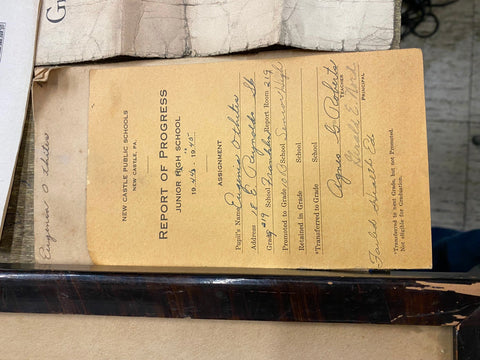 G
Eugenia Othites
NEW CASTLE PUBLIC SCHOOLS
NEW CASTLE, PA.
REPORT OF PROGRESS
JUNIOR HIGH SCHOOL
1944 - 1945
ASSIGNMENT
Pupil's Name Eugenia Othites
Address 18 E. Reynolds St
Grade 9 219 School Franklin Report Room 219
Promoted to Grade 10B School Senior High
Retained in Grade School
*Transferred to Grade School
Agnes G. Roberts
TEACHER
PRINCIPAL
Failed Health Ed
*Transferred to next Grade, but not Promoted.
Not eligible for Graduation.